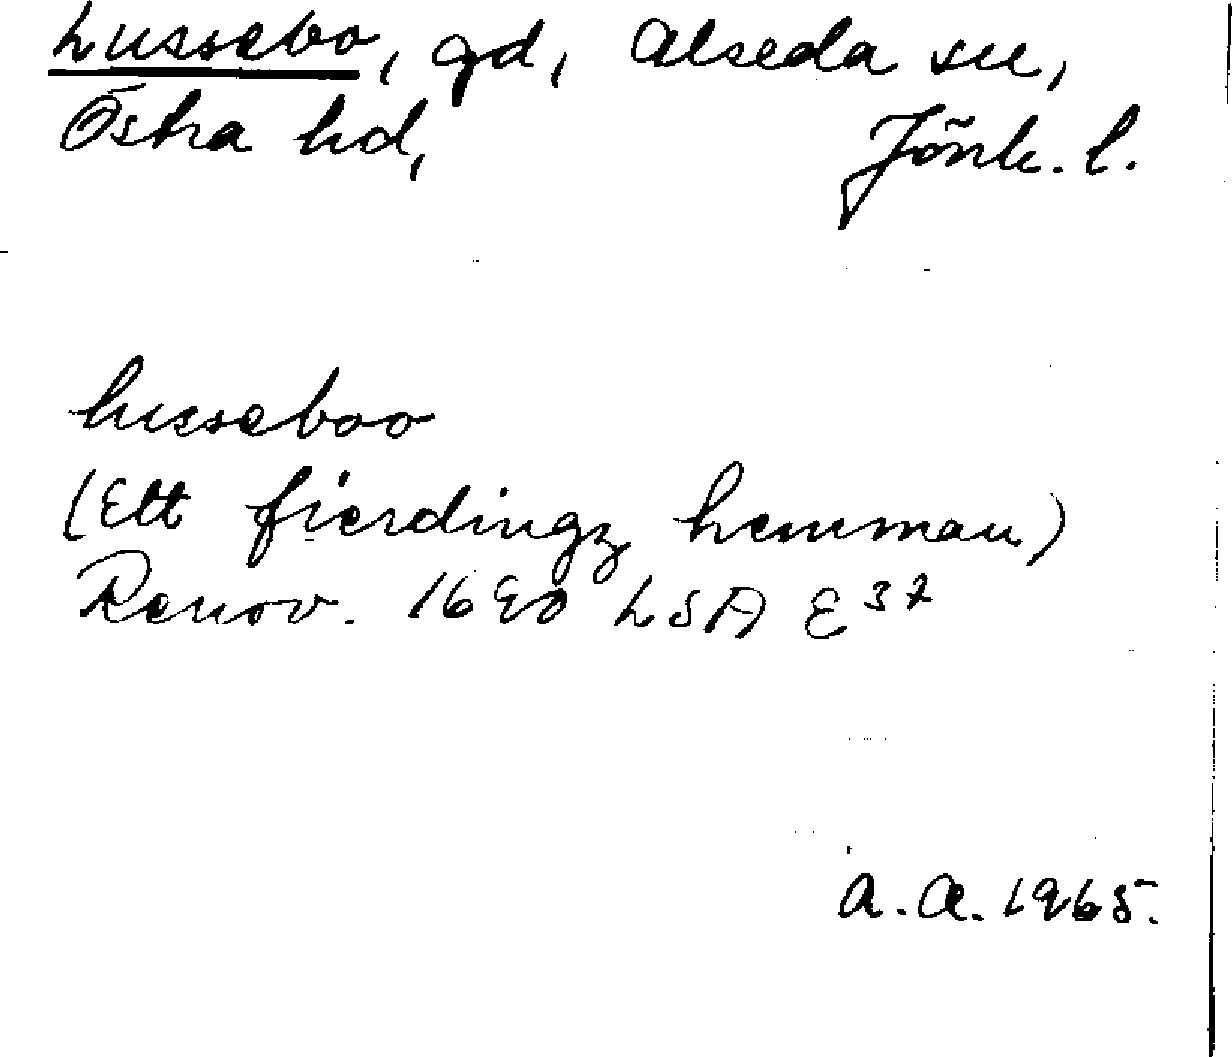 Lussebo, gd, Alseda sn,
Östra hd, Jönk. l.
lusseboo
(Ett fierdingz hemman)
Renov. 1690 LSA E 37
A.A. 1965.